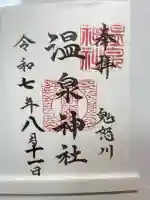 奉拝
鬼怒川
温泉神社
令和七年八月十一日